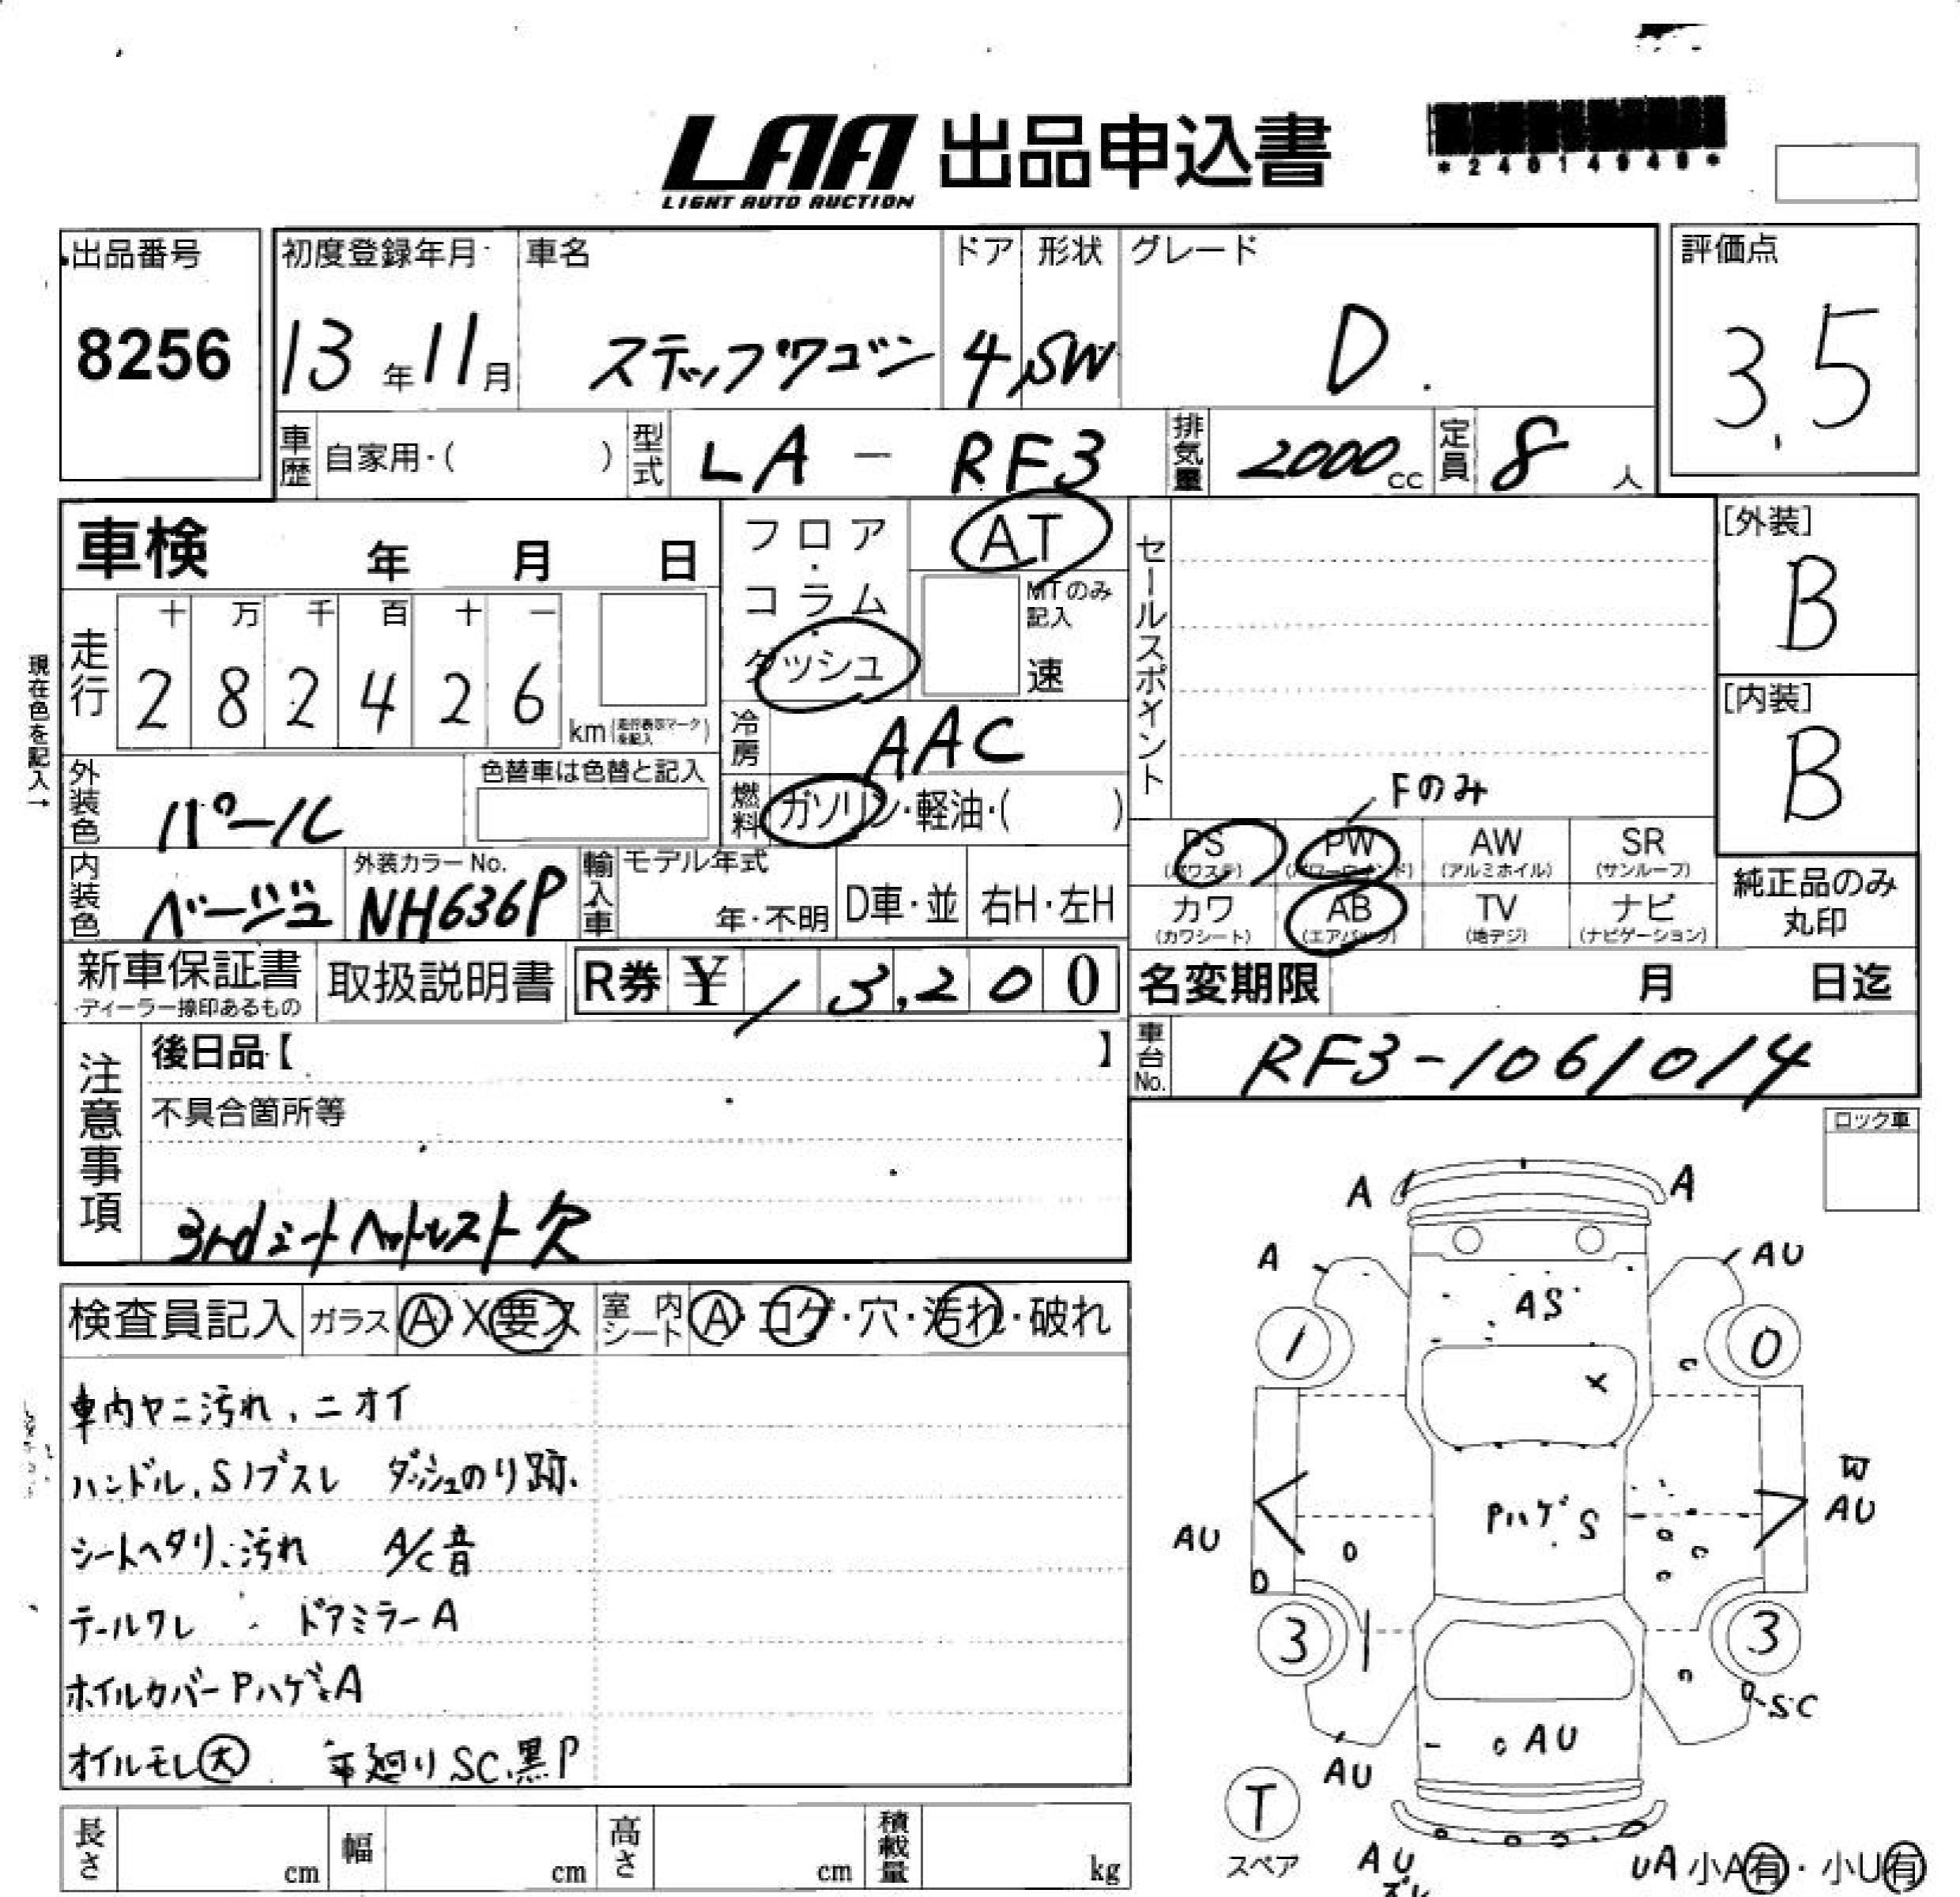 LAA 出品申込書
LIGHT AUTO AUCTION
*24014940*
出品番号 初度登録年月 車名 ドア 形状 グレード 評価点
8256 13年11月 ステップワゴン 4 SW D. 3.5
車歴 自家用・( ) 型式 LA - RF3 排気量 2000cc 定員 8人
車検 年 月 日
フロア・コラム・ダッシュ AT
MTのみ記入 速
セールスポイント
[外装]
B
現在色を記入→
走行 十 万 千 百 十 一
2 8 2 4 2 6 km (走行表示マークを記入)
冷房 AAC
[内装]
B
外装色 パール 色替車は色替と記入
燃料 ガソリン・軽油・( )
Fのみ
PS PW AW SR
(パワステ) (パワーウインド) (アルミホイル) (サンルーフ)
内装色 ベージュ 外装カラーNo. NH636P 輸入車 モデル年式 年・不明 D車・並 右H・左H
カワ AB TV ナビ
(カワシート) (エアバッグ) (地デジ) (ナビゲーション)
純正品のみ
丸印
新車保証書 取扱説明書 R券 ¥ 13,200
・ディーラー捺印あるもの
名変期限 月 日迄
注意事項 後日品【 】
車台No. RF3-1061014
不具合箇所等
ロック車
3rdシートヘットレスト欠
検査員記入 ガラス A X 要ス 室内シート A・コゲ・穴・汚れ・破れ
車内ヤニ汚れ、ニオイ
ハンドル、Sノブスレ ダッシュのり跡.
シートヘタリ、汚れ A/C音
テールワレ ドアミラーA
ホイルカバーPハゲ、A
オイルモレ大 下廻りSC、黒P
長さ cm 幅 cm 高さ cm 積載量 kg
A A
A AU
AS
1 0
X
AU PハゲS AU
3 3
SC
AU AU
T
スペア AU UA 小A有・小U有